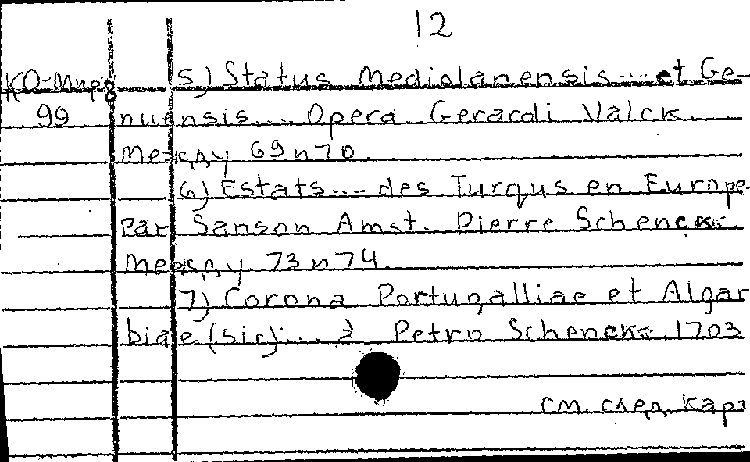 12
КО-Мирф 5) Status Mediolanensis ... et Ge-
99 nuensis ... Opera Gerardi Valck.
Между 69 и 70.
6) Estats ... des Turqus en Europe
Par Sanson Amst. Pierre Schenck
между 73 и 74
7) Corona Portugalliae et Algar
biae (sic) ... Petro Schenck 1703
см. след. карт